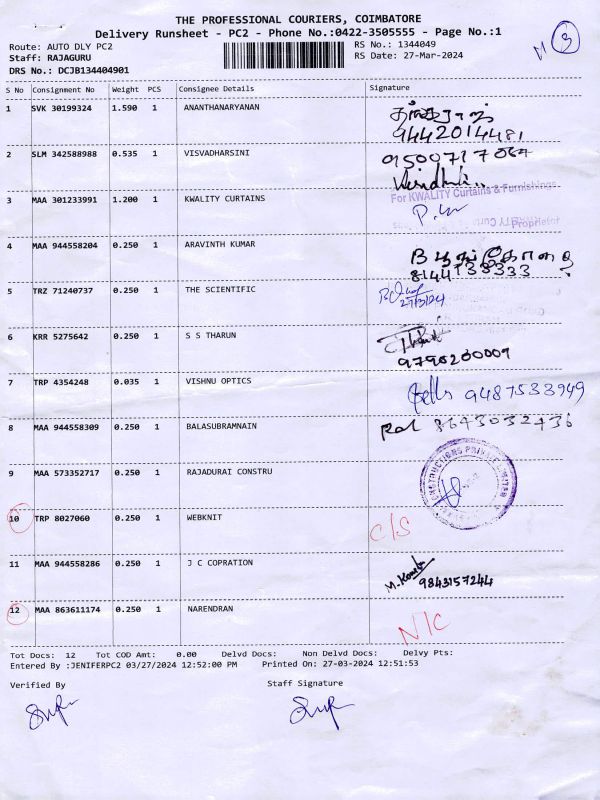 THE PROFESSIONAL COURIERS, COIMBATORE
Delivery Runsheet - PC2 - Phone No.:0422-3505555 - Page No.:1
Route: AUTO DLY PC2
Staff: RAJAGURU
DRS No.: DCJB134404901
RS No.: 1344049
RS Date: 27-Mar-2024
M 3
S No Consignment No Weight PCS Consignee Details Signature
1 SVK 30199324 1.590 1 ANANTHANARYANAN
9442014481
2 SLM 342588988 0.535 1 VISVADHARSINI
3 MAA 301233991 1.200 1 KWALITY CURTAINS
For KWALITY Curtains & Furnishings
Proprietor
4 MAA 944558204 0.250 1 ARAVINTH KUMAR
5 TRZ 71240737 0.250 1 THE SCIENTIFIC
27/3/24
6 KRR 5275642 0.250 1 S S THARUN
9790200009
7 TRP 4354248 0.035 1 VISHNU OPTICS
9487533949
8 MAA 944558309 0.250 1 BALASUBRAMNAIN
8643032436
9 MAA 573352717 0.250 1 RAJADURAI CONSTRU
10 TRP 8027060 0.250 1 WEBKNIT
C/S
11 MAA 944558286 0.250 1 J C COPRATION
9843157244
12 MAA 863611174 0.250 1 NARENDRAN
N/C
Tot Docs: 12 Tot COD Amt: 0.00 Delvd Docs: Non Delvd Docs: Delvy Pts:
Entered By :JENIFERPC2 03/27/2024 12:52:00 PM Printed On: 27-03-2024 12:51:53
Verified By Staff Signature